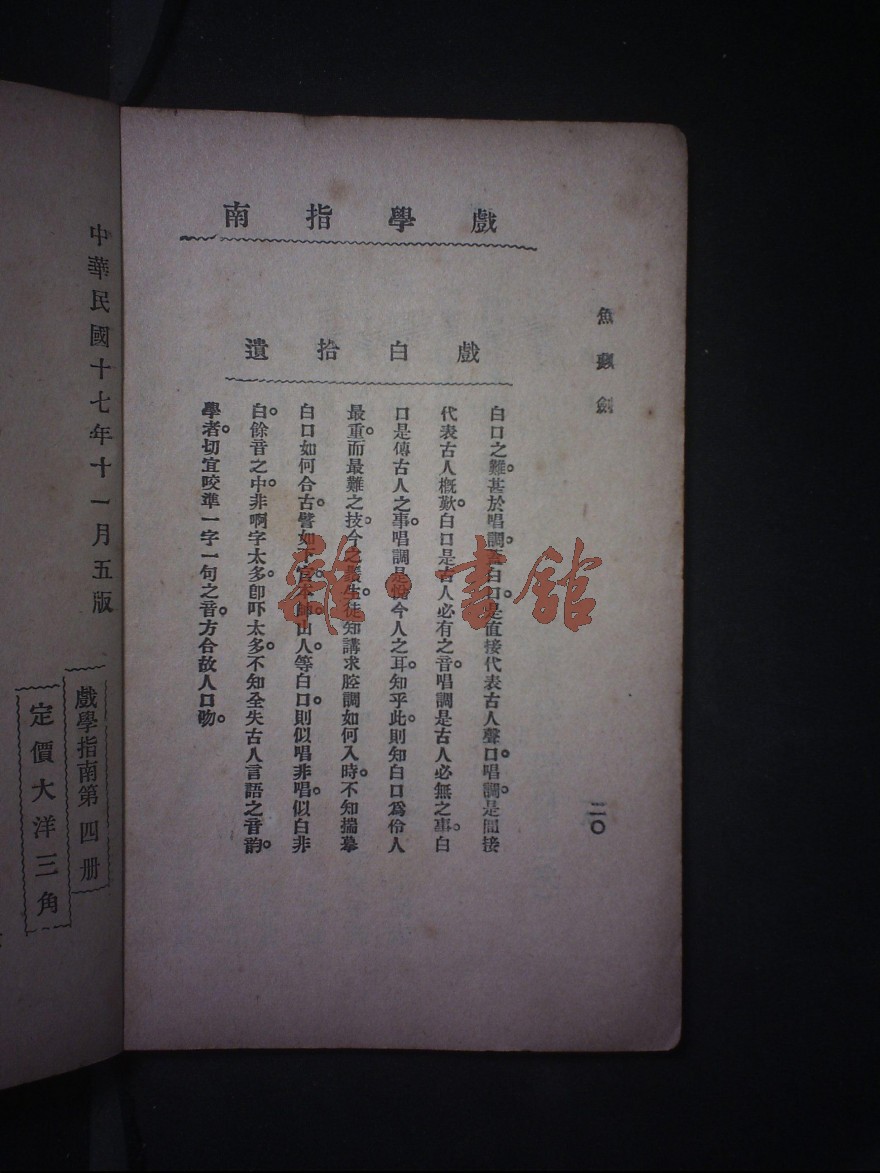 魚藏劍
二〇
戲學指南
戲白拾遺
白口之難。甚於唱調。蓋白口。是直接代表古人聲口。唱調。是間接
代表古人概歎。白口是古人必有之音。唱調是古人必無之事。白
口是傳古人之事。唱調是悅今人之耳。知乎此。則知白口為伶人
最重。而最難之技。今之叢生。徒知講求腔調如何入時。不知揣摹
白口如何合古。譬如下官。本帥。山人。等白口。則似唱非唱。似白非
白。餘音之中。非啊字太多。卽吓太多。不知全失古人言語之音韵。
學者。切宜咬準一字一句之音。方合故人口吻。
中華民國十七年十一月五版
戲學指南第四册
定價大洋三角
雜·書館